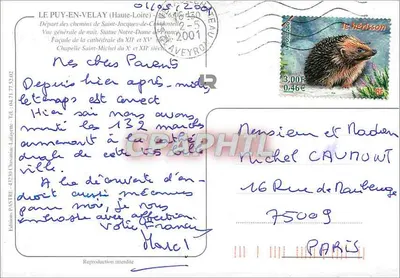 LE PUY-EN-VELAY (Haute-Loire)
Départ des chemins de Saint-Jacques-de-Compostelle
Vue générale de nuit, Statue Notre-Dame
Façade de la cathédrale du XIIe et XVe
Chapelle Saint-Michel du Xe et XIIe siècle
2001
AVEYRON
le hérisson
3,00F
0,46 €
RF
Mes chers Parents
Depuis hier après-midi,
le temps est correct
Hier soir nous avons
monté les 132 marches
amenant à la
drale de cette
ville.
A la découverte d'en-
droit aussi méconnus
pour moi, je vous
embrasse avec affection
Votre
Marc!
Monsieur et Madame
Michel CAUMONT
16 Rue de Maubeuge
75009
PARIS
Reproduction interdite
CPAPHIL